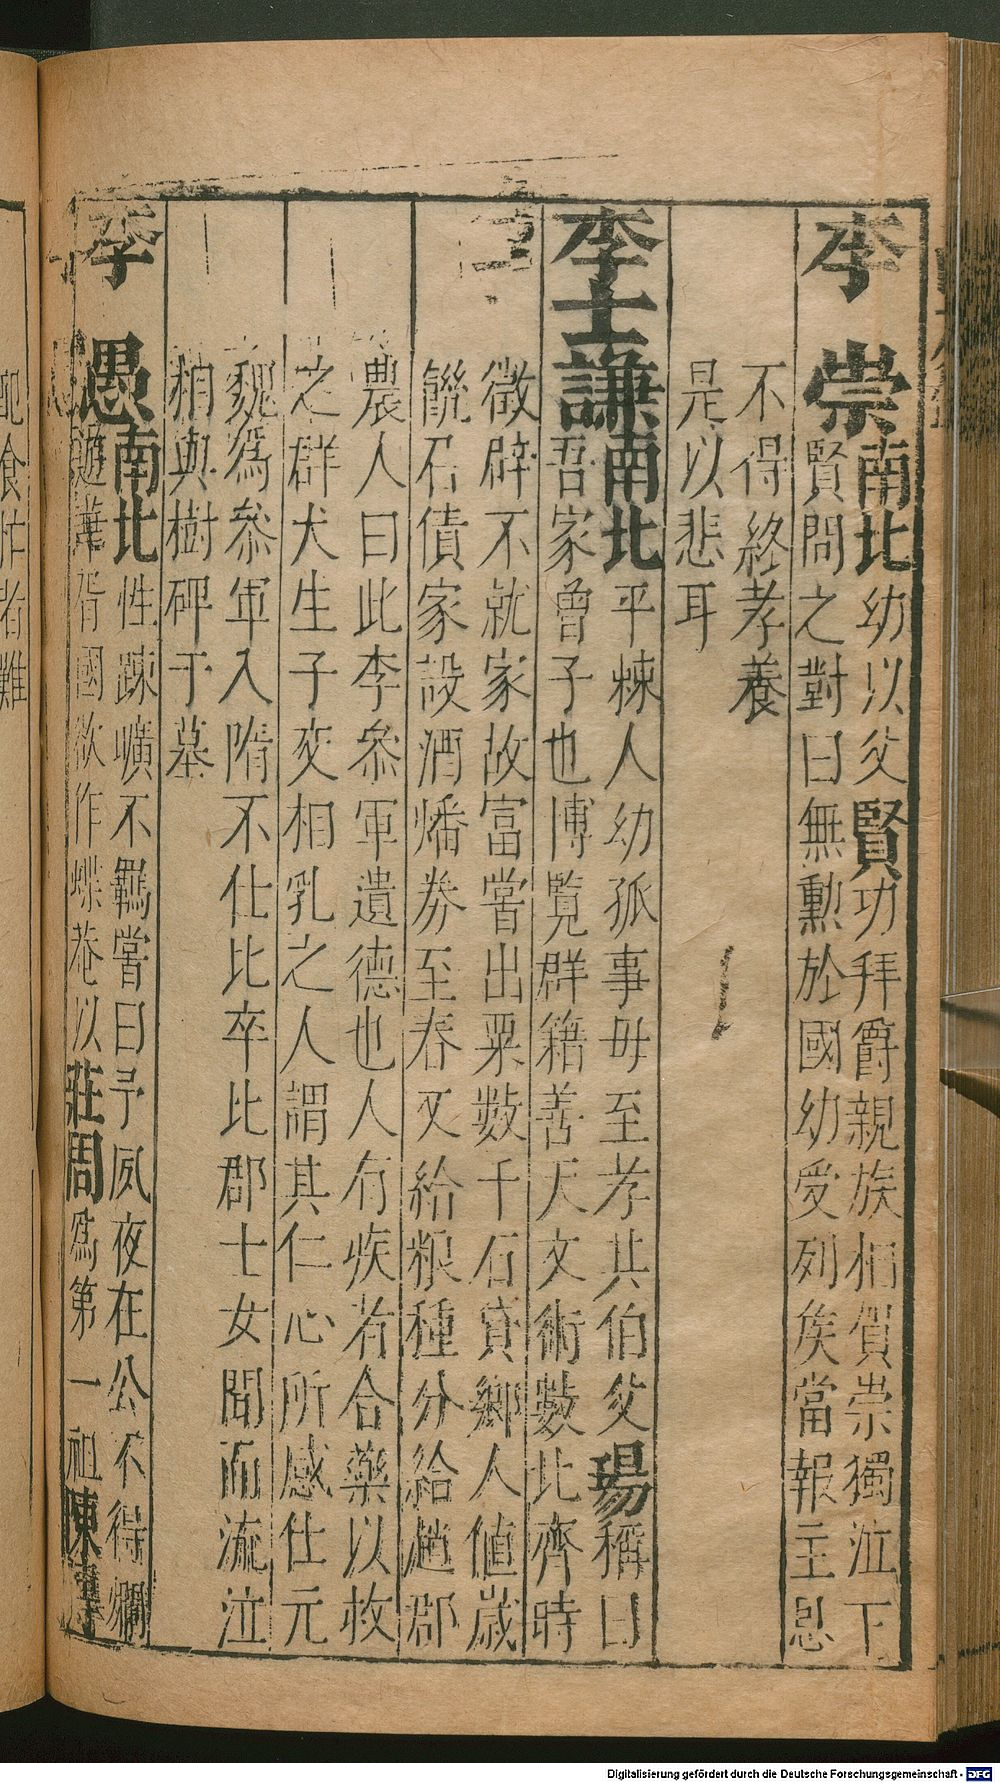 李崇南北幼以父賢功拜爵親族相賀崇獨泣下
賢問之對曰無勳於國幼受列矦當報主恩
不得終孝養
是以悲耳
李士謙南北平棘人幼孤事母至孝其伯父瑒稱曰
吾家曾子也博覽群籍善天文術數北齊時
徵辟不就家故富嘗出粟數千石貸鄉人値歲
饑召債家設酒燔券至春又給粮種分給趙郡
農人曰此李叅軍遺德也人有疾者合藥以救
之群犬生子交相乳之人謂其仁心所感仕元
魏爲叅軍入隋不仕比卒比郡士女聞而流泣
相與樹碑于墓
李愚南北性踈嚝不羈嘗曰予夙夜在公不得爛
遊華胥國欲作蝶菴以莊周爲第一祖陳摶
配食忙者難
Digitalisierung gefördert durch die Deutsche Forschungsgemeinschaft - DFG